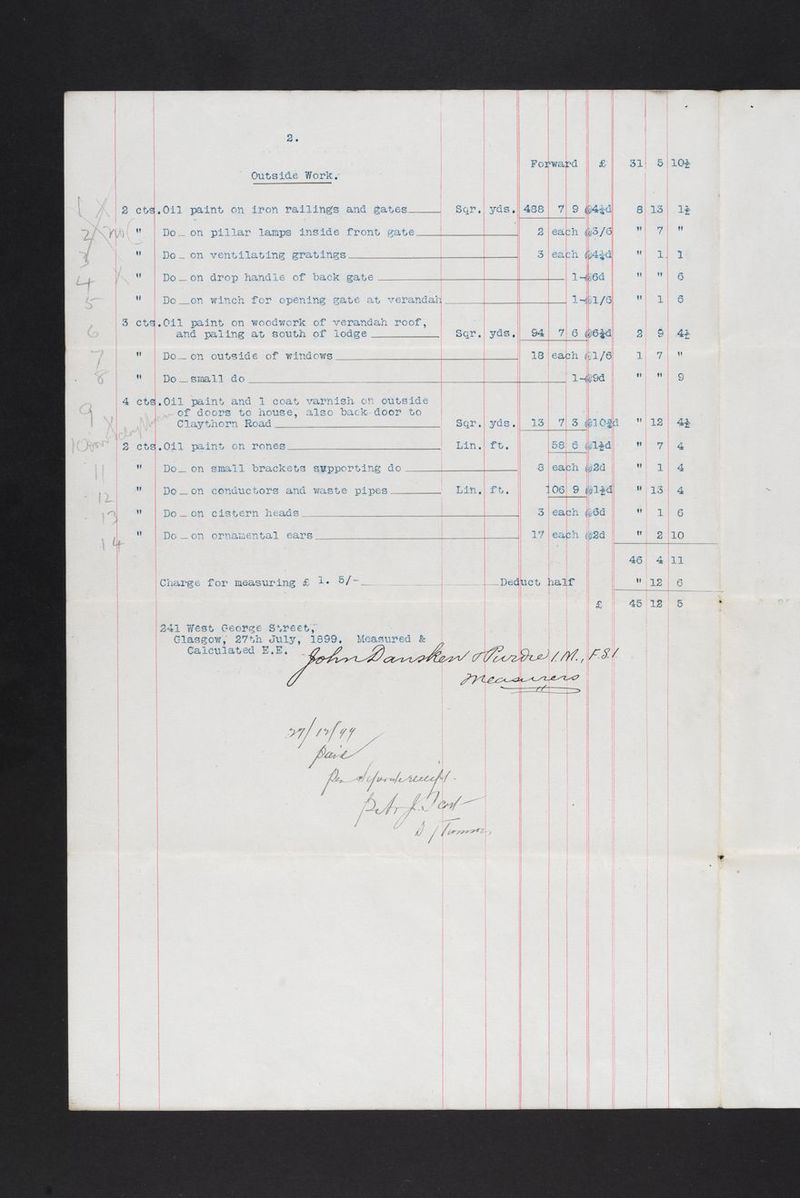 2.
Forward £ 31 5 10½
Outside Work.
1 2 cts.Oil paint on iron railings and gates Sqr. yds. 438 7 9 @4¼d 8 13 1½
2 " Do on pillar lamps inside front gate 2 each @3/6 " 7 "
3 " Do on ventilating gratings 3 each @4¼d " 1 1
4 " Do on drop handle of back gate 1-@6d " " 6
5 " Do on winch for opening gate at verandah 1-@1/6 " 1 6
6 3 cts.Oil paint on woodwork of verandah roof,
and paling at south of lodge Sqr. yds. 94 7 6 @6¼d 2 9 4½
7 " Do on outside of windows 18 each @1/6 1 7 "
8 " Do small do 1-@9d " " 9
4 cts.Oil paint and 1 coat varnish on outside
9 of doors to house, also back door to
Claythorn Road Sqr. yds. 13 7 3 @10¾d " 12 4½
10 2 cts.Oil paint on rones Lin. ft. 58 6 @1½d " 7 4
11 " Do on small brackets supporting do 8 each @2d " 1 4
12 " Do on conductors and waste pipes Lin. ft. 106 9 @1½d " 13 4
13 " Do on cistern heads 3 each @6d " 1 6
14 " Do on ornamental ears 17 each @2d " 2 10
46 4 11
Charge for measuring £ 1. 5/- Deduct half " 12 6
£ 45 12 5
241 West George Street,
Glasgow, 27th July, 1899. Measured &
Calculated E.E. John Dansken & Purdie I.M., F.S.I.
Measurers
27/12/99
paid
per separate receipt.